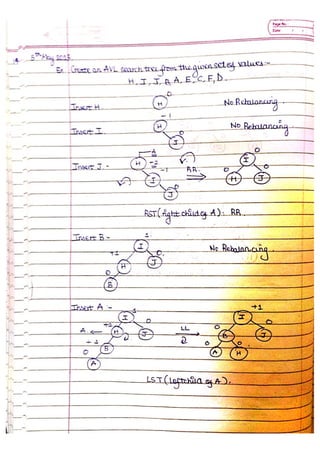 Page No.
Date
5th May 2023.
Ex. Create an AVL search tree from the given set of values:-
H, I, J, B, A, E, C, F, D.
Insert H
0
H
No Rebalancing.
Insert I.
-1
H
0
I
No Rebalancing.
Insert J -
A
H -2
I -1
J 0
RR
0
I
0 H
J 0
RST (right child of A): RR.
Insert B -
1
I
+1 H
J 0
0 B
No Rebalancing.
Insert A -
1
I
A ← +2 H
J 0
+1 B
0 A
LL
+1
I
0 B
J 0
0 A
H 0
LST (left child of A).